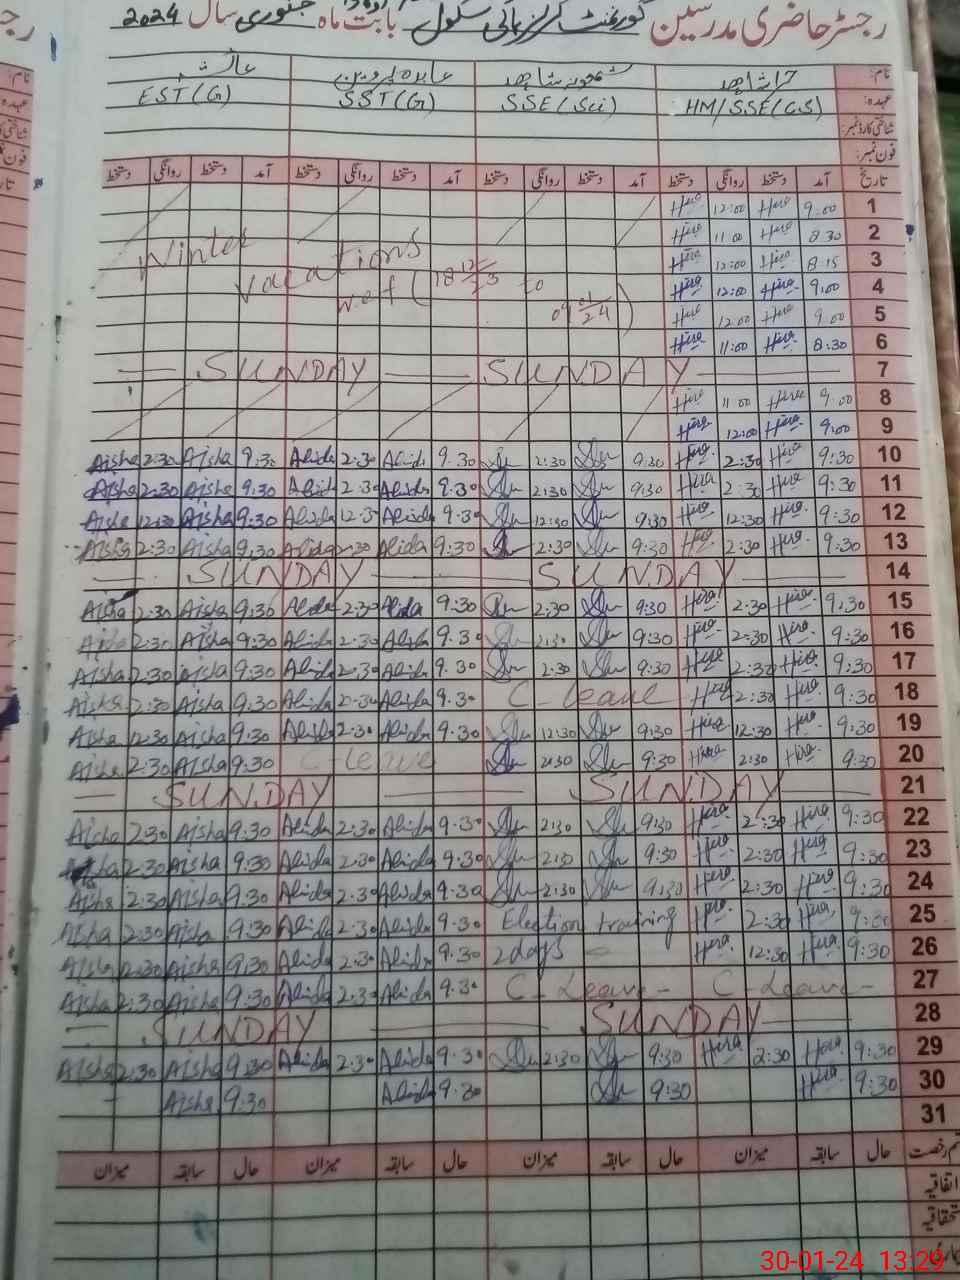 رجسٹر حاضری مدرسین گورنمنٹ گرلز ہائی سکول بابت ماہ جنوری سال 2024
نام: حرا شاہد عابدہ پروین عائشہ
عہدہ: HM/SSE(CS) SSE(Sci) SST(G) EST(G)
شناختی کارڈ نمبر:
فون نمبر:
تاریخ آمد دستخط روانگی دستخط آمد دستخط روانگی دستخط آمد دستخط روانگی دستخط آمد دستخط روانگی دستخط
1 9.00 Hira 12:00 Hira
2 8 30 Hira 11 00 Hira
Winter
3 8 15 Hira 12:00 Hira
vacations
4 9,00 Hira 12:00 Hira
w.e.f ( 18 12/23 to
5 9.00 Hira 12 00 Hira
09 01/24 )
6 8:30 Hira 11:00 Hira
7 — SUNDAY — SUNDAY —
8 9.00 Hira 11 00 Hira
9 9,00 Hira 12:00 Hira
10 9:30 Hira 2:30 Hira 9:30 2:30 9.30 Abida 2:30 Abida 9:30 Aisha 2:30 Aisha
11 9:30 Hira 2:30 Hira 9:30 2:30 9.30 Abida 2:30 Abida 9:30 Aisha 2:30 Aisha
12 9:30 Hira 12:30 Hira 9:30 12:30 9:30 Abida 12:3 Abida 9:30 Aisha 12:30 Aisha
13 9:30 Hira 2:30 Hira 9:30 2:30 9:30 Abida 2:30 Abida 9:30 Aisha 2:30 Aisha
14 — SUNDAY — SUNDAY —
15 9:30 Hira 2:30 Hira 9:30 2:30 9.30 Abida 2:30 Abida 9:30 Aisha 2:30 Aisha
16 9:30 Hira 2:30 Hira 9:30 2:30 9.30 Abida 2:30 Abida 9:30 Aisha 2:30 Aisha
17 9:30 Hira 2:30 Hira 9:30 2:30 9.30 Abida 2:30 Abida 9:30 Aisha 2:30 Aisha
18 9:30 Hira 2:30 Hira C-leave 9.30 Abida 2:30 Abida 9:30 Aisha 2:30 Aisha
19 9:30 Hira 12:30 Hira 9:30 12:30 9.30 Abida 2:30 Abida 9:30 Aisha 12:30 Aisha
20 9:30 Hira 2:30 Hira 9:30 2:30 C-leave 9:30 Aisha 2:30 Aisha
21 — SUNDAY — SUNDAY —
22 9:30 Hira 2:30 Hira 9:30 2:30 9.30 Abida 2:30 Abida 9:30 Aisha 2:30 Aisha
23 9:30 Hira 2:30 Hira 9:30 2:30 9.30 Abida 2:30 Abida 9:30 Aisha 2:30 Aisha
24 9:30 Hira 2:30 Hira 9:30 2:30 9.30 Abida 2:30 Abida 9:30 Aisha 2:30 Aisha
25 9:30 Hira 2:30 Hira Election training 9.30 Abida 2:30 Abida 9:30 Aisha 2:30 Aisha
26 9:30 Hira 12:30 Hira 2 days 9.30 Abida 2:30 Abida 9:30 Aisha 2:30 Aisha
27 C-Leave- C-Leave- 9.30 Abida 2:30 Abida 9:30 Aisha 2:30 Aisha
28 — SUNDAY — SUNDAY —
29 9:30 Hira 2:30 Hira 9:30 2:30 9.30 Abida 2:30 Abida 9:30 Aisha 2:30 Aisha
30 9:30 Hira 9:30 9:30 Abida 9:30 Aisha
31
قسم رخصت حال سابقہ میزان حال سابقہ میزان حال سابقہ میزان حال سابقہ میزان
اتفاقیہ
استحقاقیہ
30-01-24 13:29